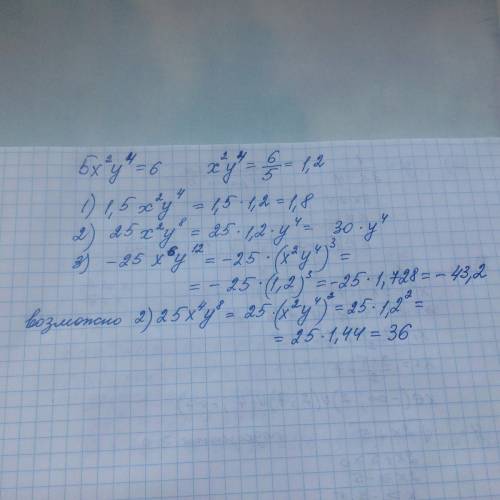 5x²y⁴=6 x²y⁴= 6/5 = 1,2
1) 1,5 x²y⁴ = 1,5·1,2=1,8
2) 25 x²y⁸ = 25·1,2·y⁴= 30·y⁴
3) -25 x⁶y¹² = -25·(x²y⁴)³ =
= -25·(1,2)³=-25·1,728=-43,2
возможно 2) 25x⁴y⁸= 25·(x²y⁴)²=25·1,2²=
= 25·1,44 = 36